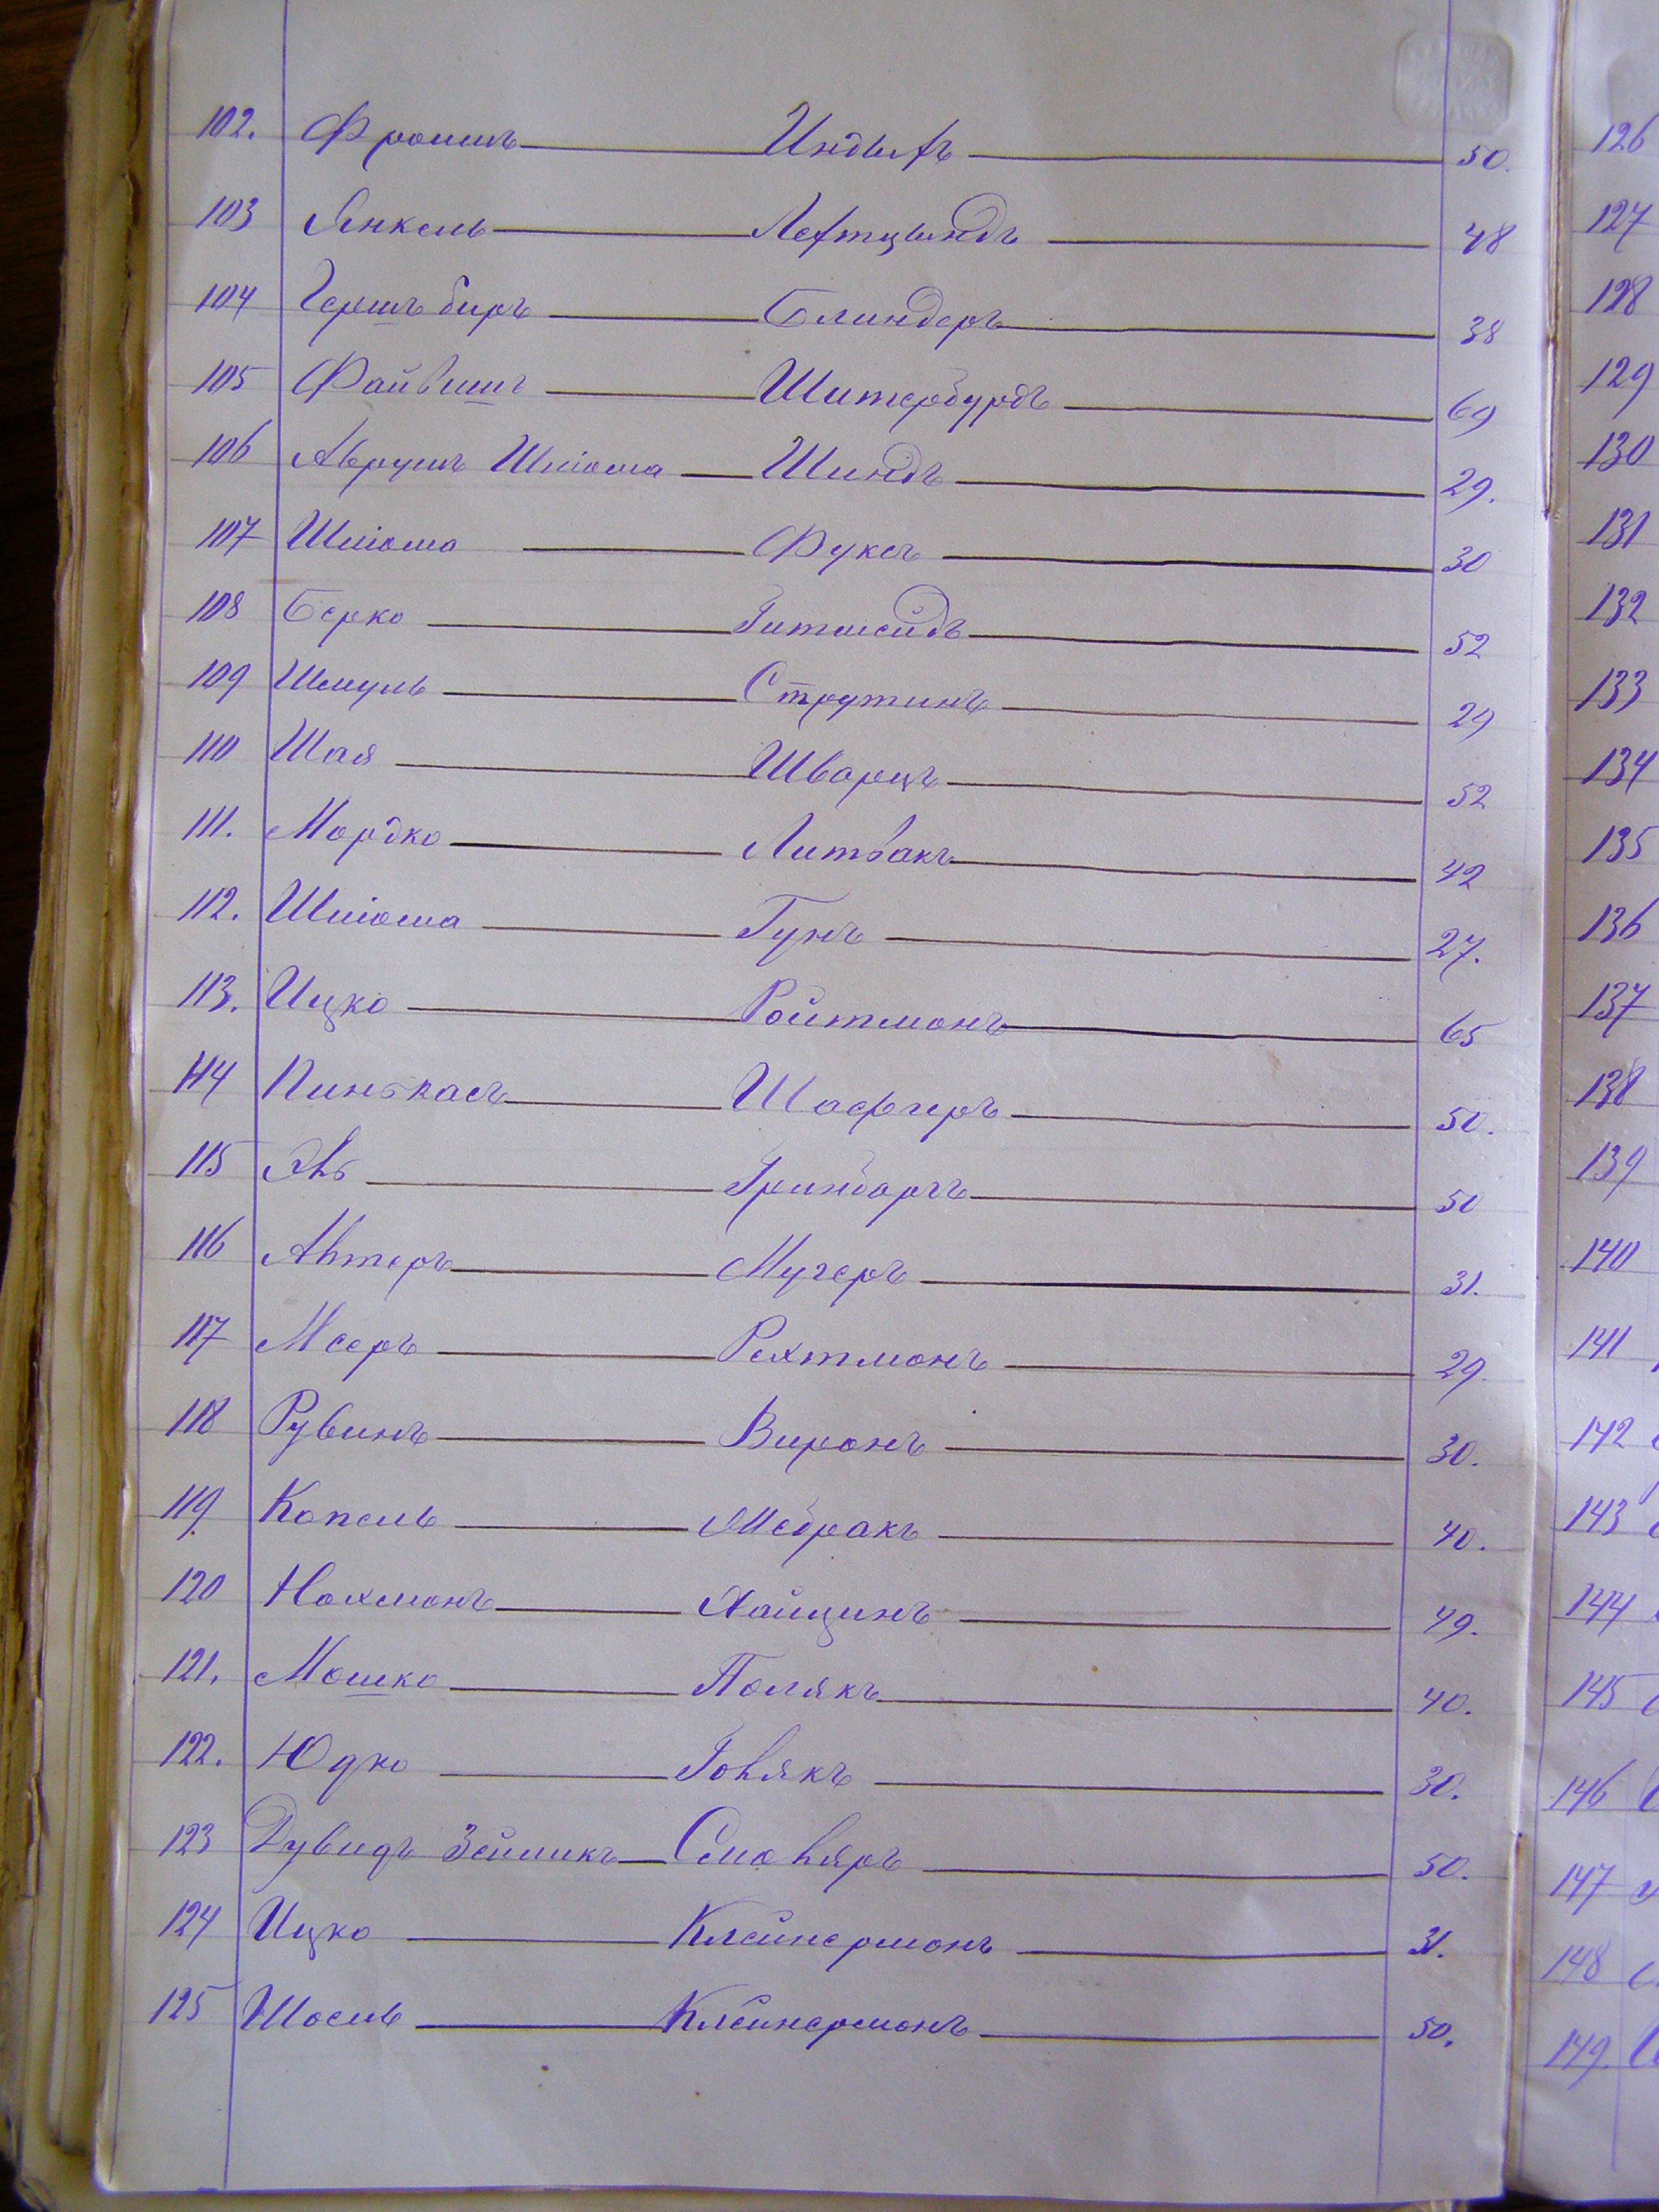 102. Фроимъ Индыкъ 50.
103 Янкель 48
104 Гершъ беръ Блиндеръ 38
105 Файвишъ Шитербурдъ 69
106 Аврумъ Шлiома Шиндъ 29.
107 Шлiома Фуксъ 30
108 Берко Гитшейдъ 52
109 Шмуль Струтинъ 29
110 Шая Шварцъ 52
111. Мордко Литвакъ 42
112. Шлiома Гунъ 27.
113. Ицко Ройтманъ 65
114 Пинькасъ Шафиръ 50.
115 50
116 Алтеръ Мучеръ 31.
117 Мееръ Рехтманъ 29.
118 Рувинъ Виронъ 30.
119. Копель 40.
120 Нахманъ Хайцинъ 49.
121. Мошко Полякъ 40.
122. Юдко 30.
123 Дувидъ Зейликъ 50.
124 Ицко Клейнерманъ 31.
125 Шоель Клейнерманъ 50.
126
127
128
129
130
131
132
133
134
135
136
137
138
139
140
141
142
143
144
145
146
147
148
149.